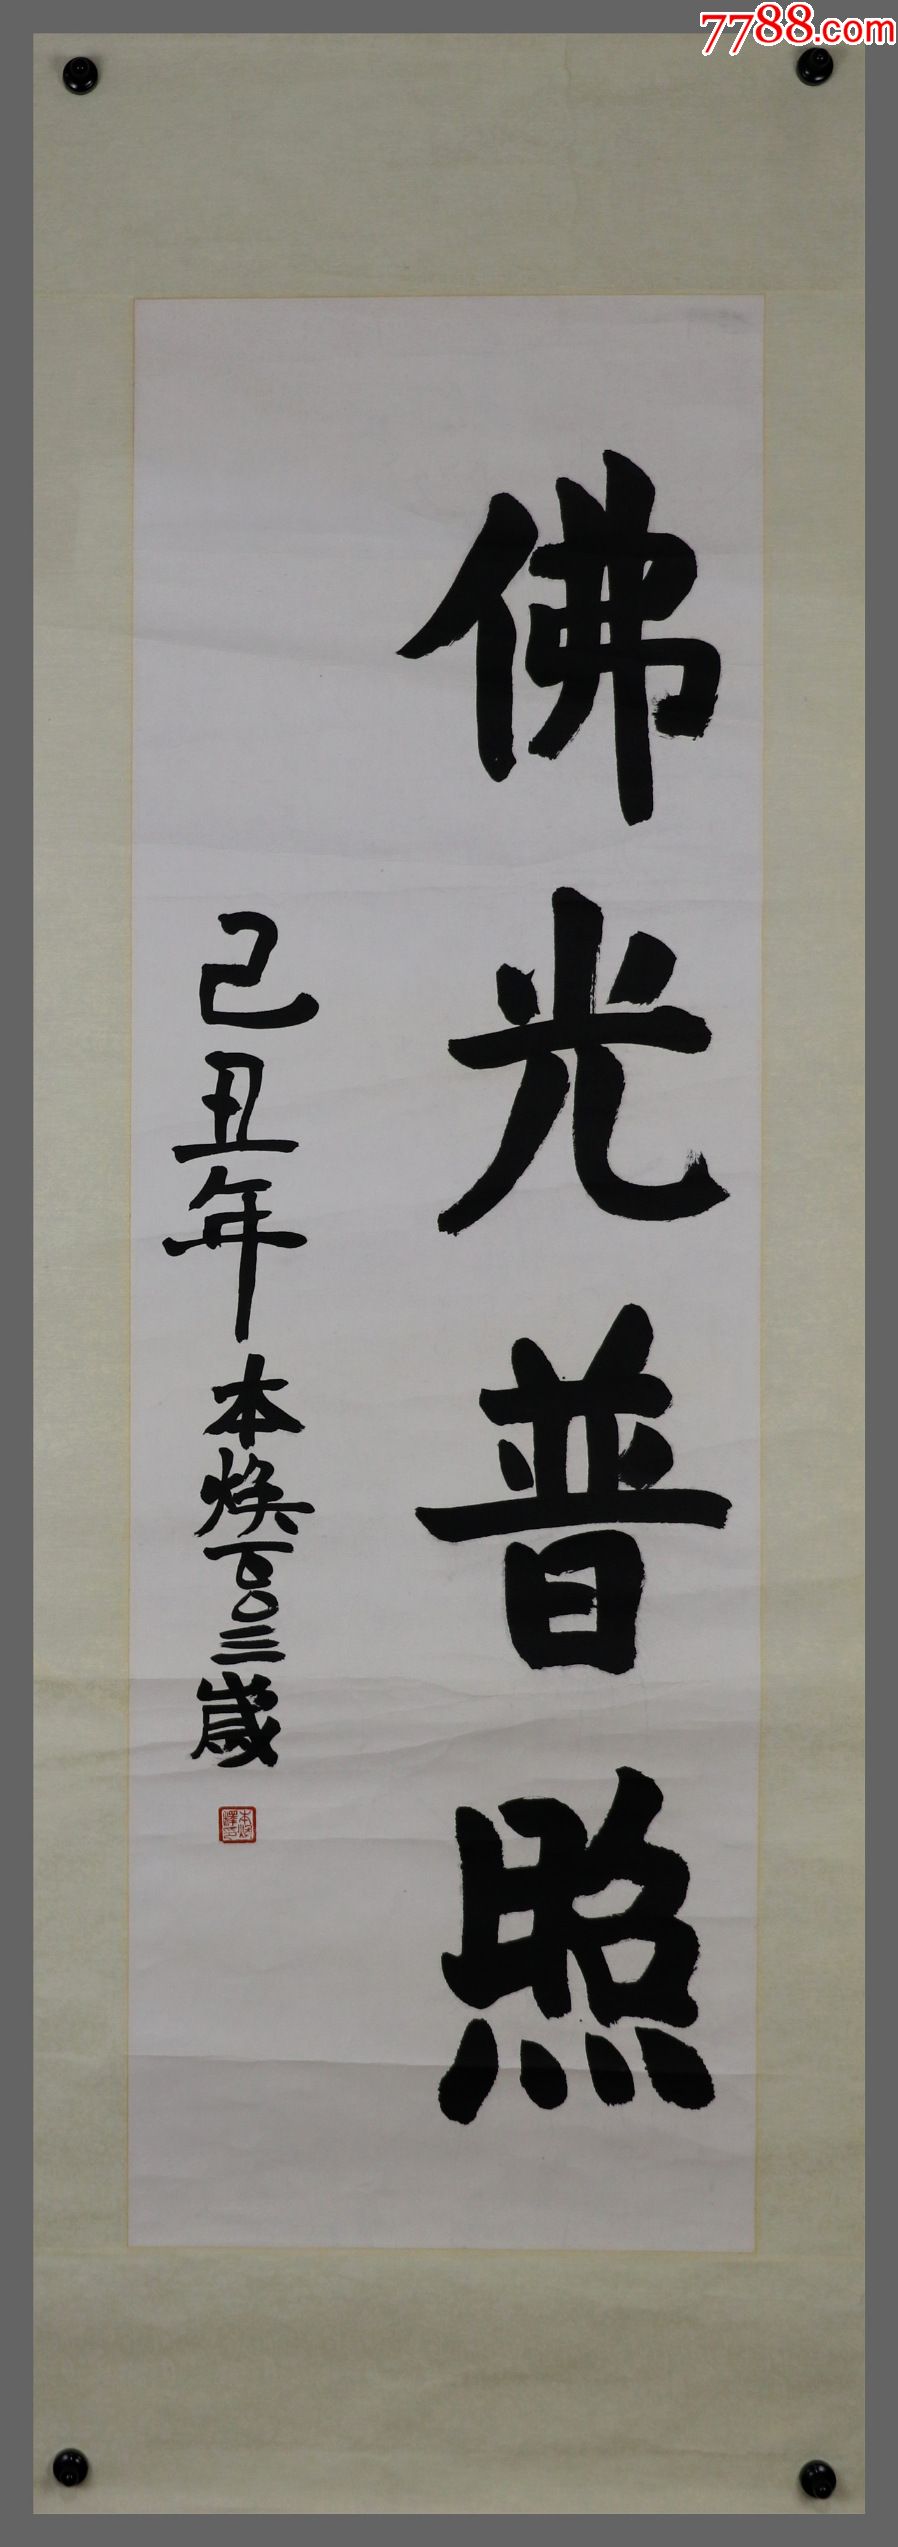 7788.com
佛光普照
己丑年本焕百〇三歲